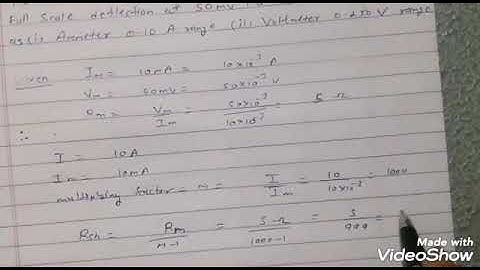 Full Scale deflection at 50mv
as (i) Ammeter 0-10 A range (ii) Voltmeter 0-250 V range
Im = 10mA = 10×10⁻³ A
Vm = 50mV = 50×10⁻³ V
Rm = Vm / Im = 50×10⁻³ / 10×10⁻³ = 5 Ω
∴
I = 10A
Im = 10mA
multiplying factor = m = I / Im = 10 / 10×10⁻³ = 1000
Rsh = Rm / m-1 = 5Ω / 1000-1 = 5 / 999 =
Made with
VideoShow